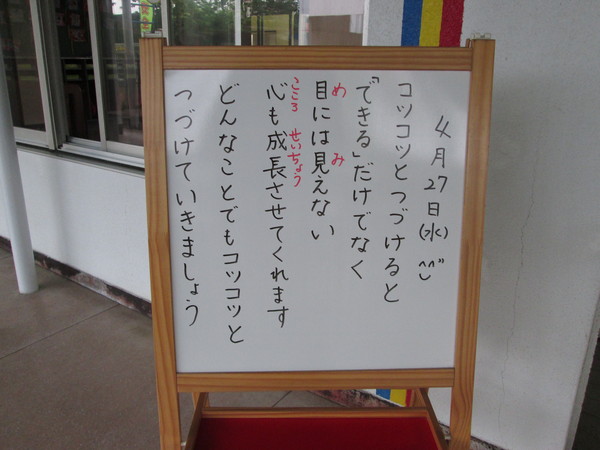 4月27日(水)^^
コツコツとつづけると
「できる」だけでなく
目には見えない
め み
心も成長させてくれます
こころ せいちょう
どんなことでもコツコツと
つづけていきましょう